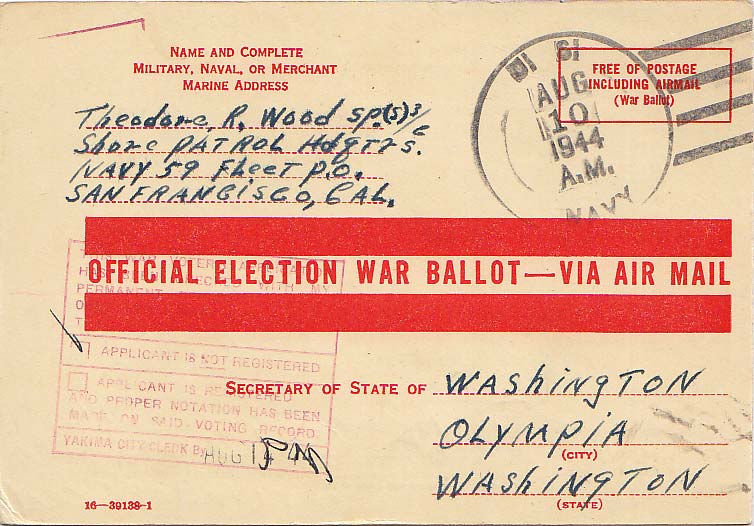 NAME AND COMPLETE
MILITARY, NAVAL, OR MERCHANT
MARINE ADDRESS
Theodore R. Wood SP.(S) 3/c
Shore PATROL Hdqtrs.
NAVY 59 Fleet P.O.
SAN FRANCISCO, CAL.
AUG
10
1944
A.M.
NAVY
FREE OF POSTAGE
INCLUDING AIRMAIL
(War Ballot)
OFFICIAL ELECTION WAR BALLOT—VIA AIR MAIL
APPLICANT IS NOT REGISTERED
APPLICANT IS REGISTERED
AND PROPER NOTATION HAS BEEN
MADE ON SAID VOTING RECORD
YAKIMA CITY CLERK By
AUG
SECRETARY OF STATE OF WASHINGTON
OLYMPIA
(CITY)
WASHINGTON
(STATE)
16—39138-1